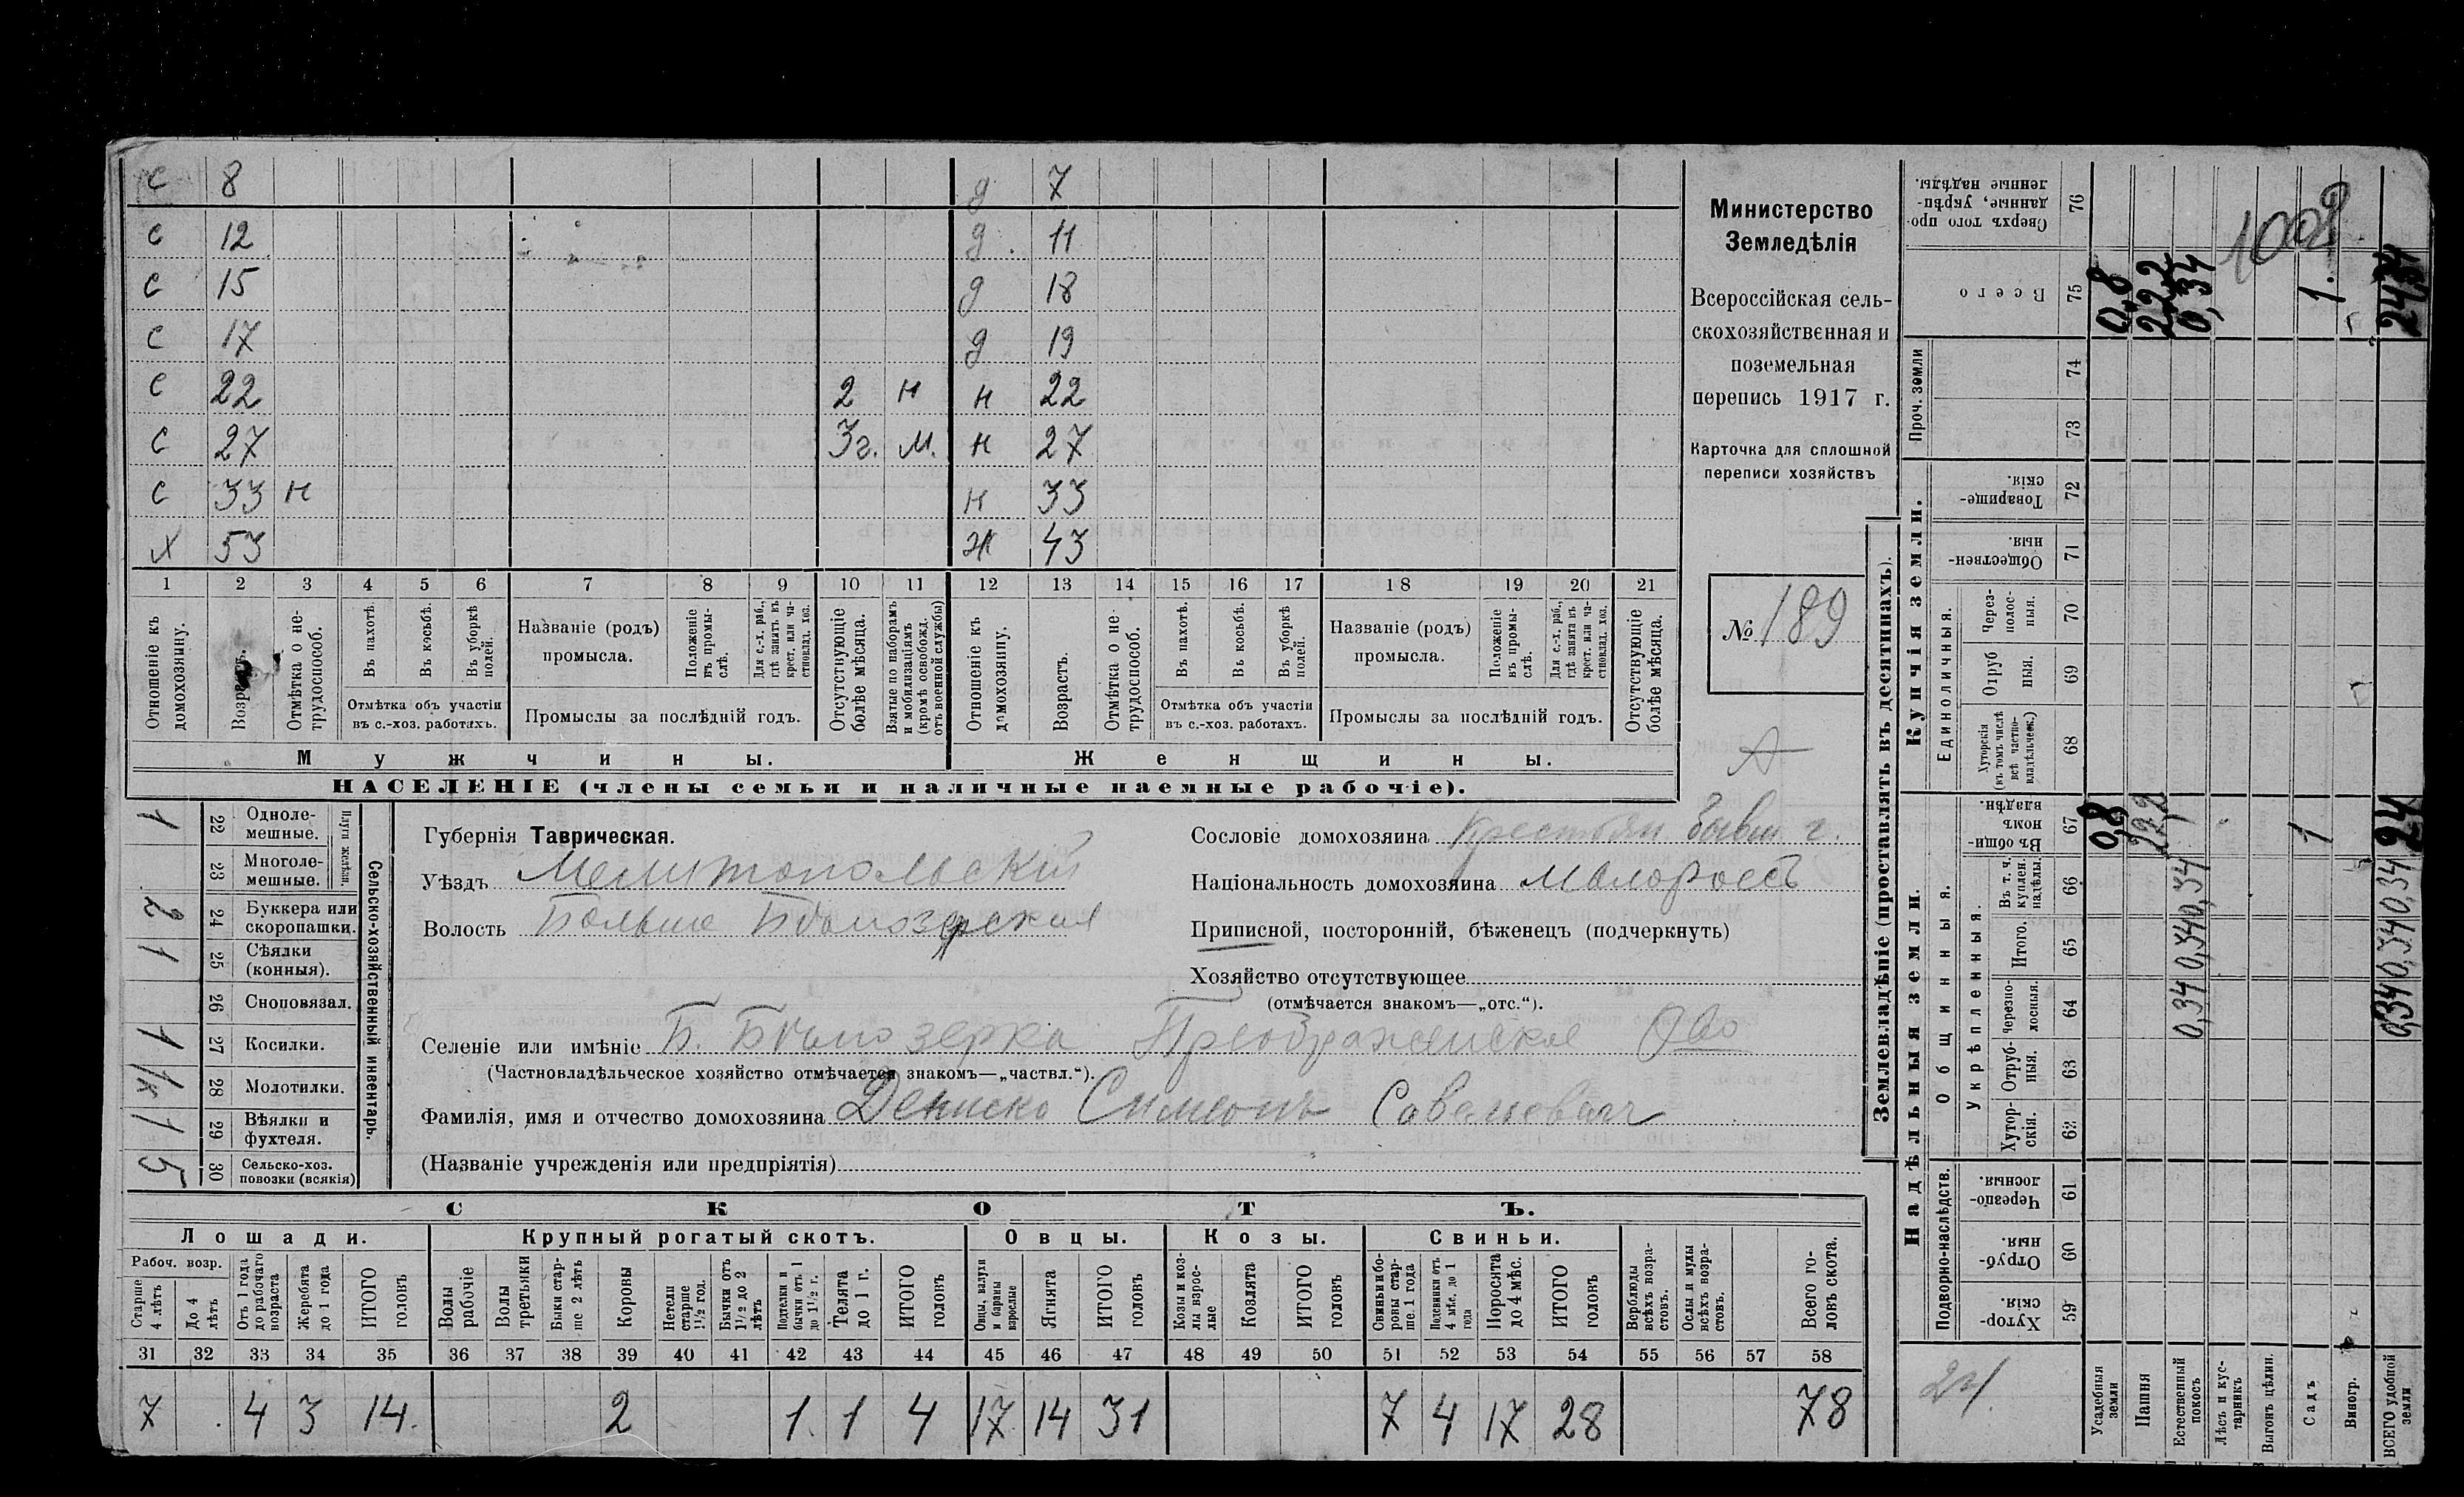 с 8 д 7
с 12 д. 11
с 15 д 18
с 17 д 19
с 22 2 н н 22
с 27 3г. м. н 27
с 33 н н 33
х 53 ж 43
1 2 3 4 5 6 7 8 9 10 11 12 13 14 15 16 17 18 19 20 21
Отношеніе къ домохозяину.
Возрастъ.
Отмѣтка о нетрудоспособ.
Въ пахотѣ.
Въ косьбѣ.
Въ уборкѣ полей.
Отмѣтка объ участіи
въ с.-хоз. работахъ.
Названіе (родъ)
промысла.
Положеніе въ промыслѣ.
Для с.-х. раб., гдѣ занятъ въ крест. или частновлад. хоз.
Промыслы за послѣдній годъ.
Отсутствующіе болѣе мѣсяца.
Взятые по наборамъ и мобилизаціямъ (кромѣ освобожд. отъ военной службы)
Отношеніе къ домохозяину.
Возрастъ.
Отмѣтка о нетрудоспособ.
Въ пахотѣ.
Въ косьбѣ.
Въ уборкѣ полей.
Отмѣтка объ участіи
въ с.-хоз. работахъ.
Названіе (родъ)
промысла.
Положеніе въ промыслѣ.
Для с.-х. раб., гдѣ занята въ крест. или частновлад. хоз.
Промыслы за послѣдній годъ.
Отсутствующіе болѣе мѣсяца.
Мужчины.
Женщины.
НАСЕЛЕНІЕ (члены семьи и наличные наемные рабочіе).
Министерство
Земледѣлія
Всероссійская сель-
скохозяйственная и
поземельная
перепись 1917 г.
Карточка для сплошной
переписи хозяйствъ
№ 189
А
Сельско-хозяйственный инвентарь.
Плуги желѣзн.
1 22 Одноле-
мешные.
23 Многоле-
мешные.
2 24 Буккера или
скоропашки.
1 25 Сѣялки
(конныя).
26 Сноповязал.
1 27 Косилки.
1к 28 Молотилки.
1 29 Вѣялки и
фухтеля.
5 30 Сельско-хоз.
повозки (всякія)
Губернія Таврическая.
Уѣздъ Мелитопольскій
Волость Больше Бѣлозерская
Сословіе домохозяина Крестьян. бывш. г.
Національность домохозяина малороссъ
Приписной, посторонній, бѣженецъ (подчеркнуть)
Хозяйство отсутствующее
(отмѣчается знакомъ—„отс.“).
Селеніе или имѣніе Б. Бѣлозерка Преображенское Ово
(Частновладѣльческое хозяйство отмѣчается знакомъ—„частвл.“).
Фамилія, имя и отчество домохозяина Дениско Симеонъ Савельевич
(Названіе учрежденія или предпріятія)
СКОТЪ.
Лошади. Крупный рогатый скотъ. Овцы. Козы. Свиньи.
Рабоч. возр.
Старше 4 лѣтъ
До 4 лѣтъ
Отъ 1 года до рабочаго возраста
Жеребята до 1 года
ИТОГО головъ
Волы рабочіе
Волы третьяки
Быки старше 2 лѣтъ
Коровы
Нетели старше 1½ год.
Бычки отъ 1½ до 2 лѣтъ
Подтелки и бычки отъ 1 до 1½ г.
Телята до 1 г.
ИТОГО головъ
Овцы, валухи и бараны взрослые
Ягнята
ИТОГО головъ
Козы и козлы взрослые
Козлята
ИТОГО головъ
Свиньи и боровы старше 1 года
Подсвинки отъ 4 мѣс. до 1 года
Поросята до 4 мѣс.
ИТОГО головъ
Верблюды всѣхъ возрастовъ.
Ослы и мулы всѣхъ возрастовъ.
Всего головъ скота.
31 32 33 34 35 36 37 38 39 40 41 42 43 44 45 46 47 48 49 50 51 52 53 54 55 56 57 58
7 4 3 14. 2 1 1 4 17 14 31 7 4 17 28 78
Землевладѣніе (проставлять въ десятинахъ).
Надѣльныя земли.
Купчія земли.
Проч. земли
Сверхъ того проданные, укрѣпленные надѣлы. 76
Всего 75
74
73
Товарищескія. 72
Общественныя. 71
Единоличныя.
Черезполосныя. 70
Отрубныя. 69
Хуторскія (въ томъ числѣ всѣ частновладѣльческ.) 68
Общинныя.
Въ общинномъ владѣн. 67
Укрѣпленныя.
Въ т. ч. куплен. надѣлы. 66
Итого. 65
Черезполосныя. 64
Отрубныя. 63
Хуторскія. 62
Подворно-наслѣдств.
Черезполосныя. 61
Отрубныя 60
Хуторскія. 59
24
Усадебныя земли 0,8 0,8
Пашня 22,2 22,2
Естественный покосъ 0,34 0,34 0,34 0,34
Лѣсъ и кустарникъ
Выгонъ цѣлин.
Садъ 1 1.
Виногр.
ВСЕГО удобной земли 0,34 0,34 0,34 24 24,34